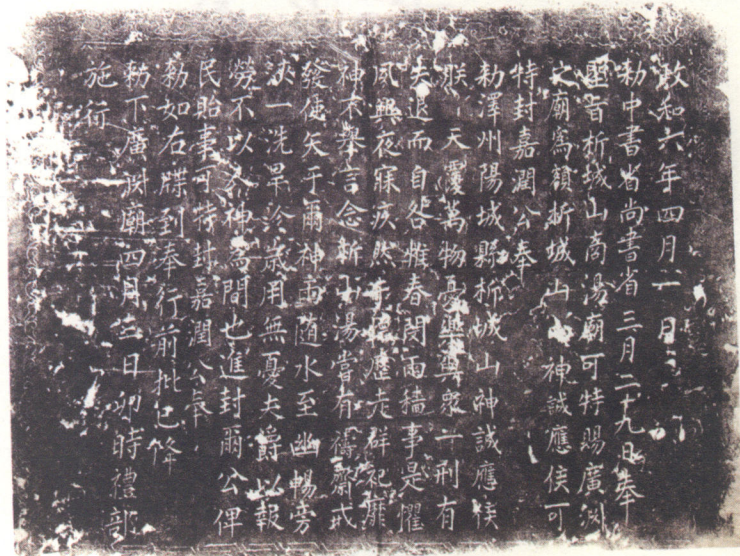 政和六年四月一日
勑中書省尚書省三月二十九日奉
聖旨析城山商湯廟可特賜廣渕
之廟為額析城山山神誠應侯可
特封嘉潤公奉
勑澤州陽城縣析城山神誠應侯
朕天覆萬物憂樂與眾一刑有
失退而自咎惟春閔雨穡事是懼
夙興夜寐疚然于走群祀靡
神不舉言念析山湯嘗有禱齋戒
發使矢于爾神雨隨水至幽暢旁
浹一洗旱沴歲用無憂夫爵以報
勞不以人神為間也進封爾公俾
民貽事可特封嘉潤公奉
勑如右牒到奉行前批已降
勑下廣渕廟四月三日卯時禮部
施行